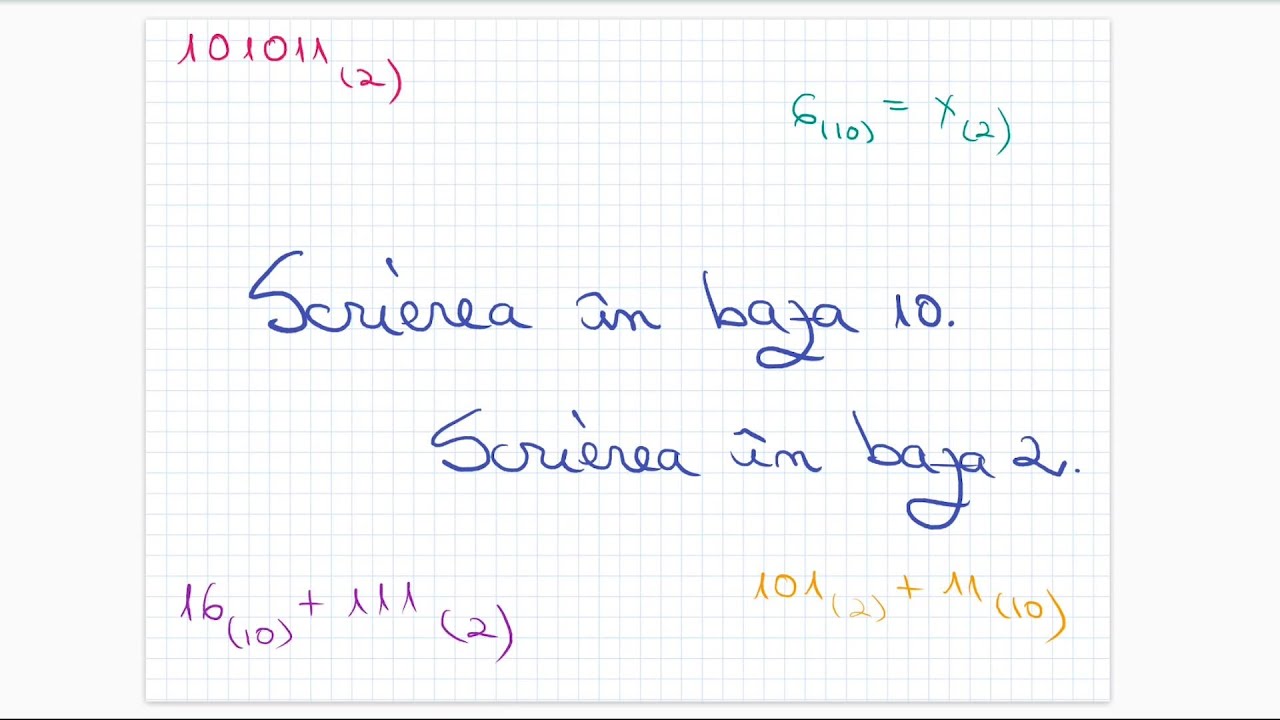 101011(2)
6(10) = x(2)
Scrierea în baza 10.
Scrierea în baza 2.
16(10) + 111(2)
101(2) + 11(10)